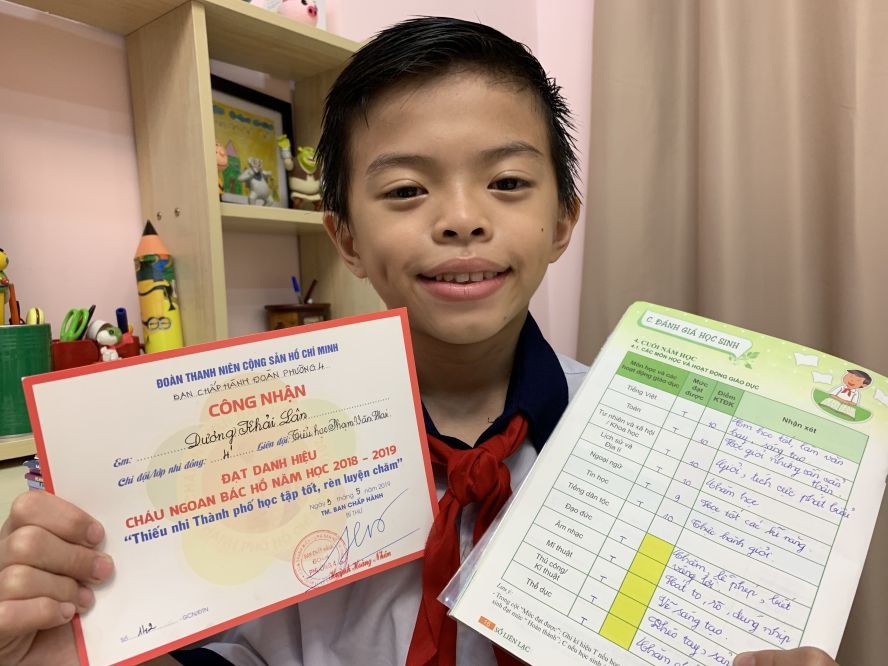 ĐOÀN THANH NIÊN CỘNG SẢN HỒ CHÍ MINH
BAN CHẤP HÀNH ĐOÀN PHƯỜNG 4
CÔNG NHẬN
Em: Dương Khải Lân
Chi đội/lớp nhi đồng: 4 Liên đội: Tiểu học Phạm Văn Hai
ĐẠT DANH HIỆU
CHÁU NGOAN BÁC HỒ NĂM HỌC 2018 - 2019
“Thiếu nhi Thành phố học tập tốt, rèn luyện chăm”
Ngày 3 tháng 5 năm 2019
TM. BAN CHẤP HÀNH
BÍ THƯ
Huỳnh Hoàng Nhân
Số 142 -GCN/ĐTN
C. ĐÁNH GIÁ HỌC SINH
4. CUỐI NĂM HỌC
4.1. CÁC MÔN HỌC VÀ HOẠT ĐỘNG GIÁO DỤC
Môn học và các hoạt động giáo dục Mức đạt được Điểm KTĐK Nhận xét
Tiếng Việt T 10 Em học tốt, làm văn hay, sáng tạo
Toán T 10 Học giỏi những môn toán
Tự nhiên và xã hội / Khoa học T 10 Giỏi, tích cực phát biểu
Lịch sử và Địa lí T 10 Chăm học
Ngoại ngữ T 9 Học tốt các kĩ năng
Tin học T 10 Thực hành giỏi
Tiếng dân tộc
Đạo đức T Chăm, lễ phép, biết vâng lời
Âm nhạc T Hát to, rõ, đúng nhịp
Mĩ thuật T Vẽ sáng tạo
Thủ công/ Kĩ thuật T Khéo tay,
Thể dục T
Lưu ý:
- Trong cột "Mức đạt được": Ghi kí hiệu T nếu học
sinh đạt mức "Hoàn thành"; C nếu học sinh
SỔ LIÊN LẠC